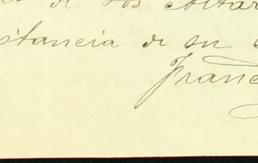 de los Altar
stancia de su
Franc